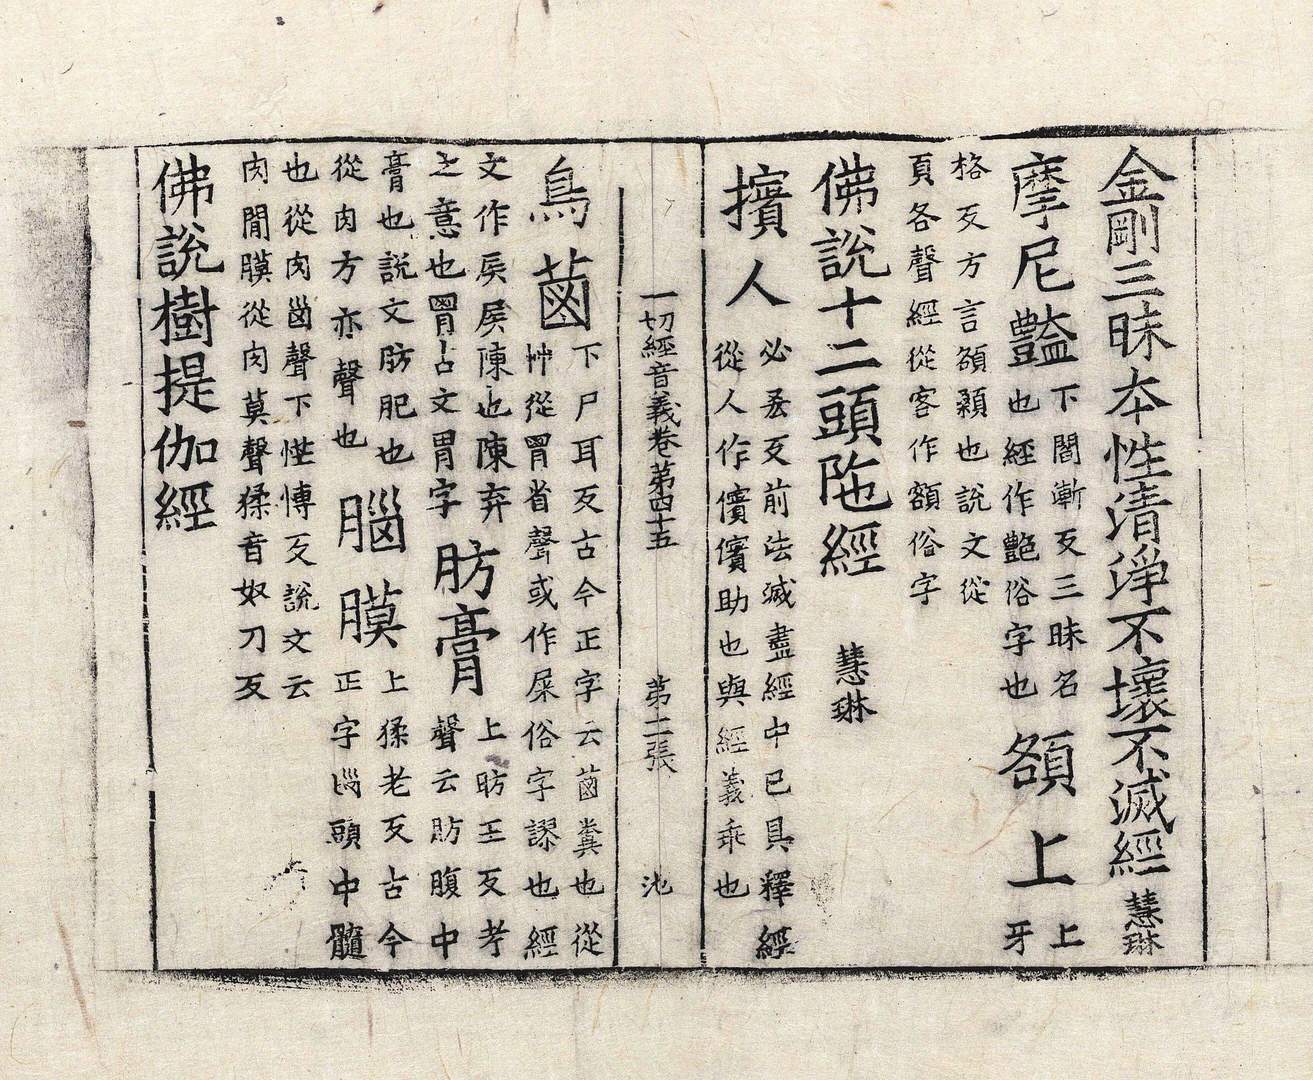 金剛三昧本性清淨不壞不滅經 慧琳
摩尼豔 下閻漸反三昧名
也經作艶俗字也 頟上 上
牙
格反方言頟顙也說文從
頁各聲經從客作額俗字
佛說十二頭陁經 慧琳
擯人 必𠀍反前法滅盡經中已具釋經
從人作儐儐助也與經義乖也
一切經音義卷第四十五 第二張 池
鳥𦳊 下尸耳反古今正字云𦳊糞也從
艸從胃省聲或作屎俗字謬也經
文作㞏㞏陳也陳弃
之意也𦞅古文胃字 肪膏 上昉王反考
聲云肪腹中
膏也說文肪肥也
從肉方亦聲也 腦膜 上猱老反古今
正字𡿺頭中髓
也從肉𡿺聲下忙博反說文云
肉閒膜從肉莫聲猱音奴刀反
佛說樹提伽經